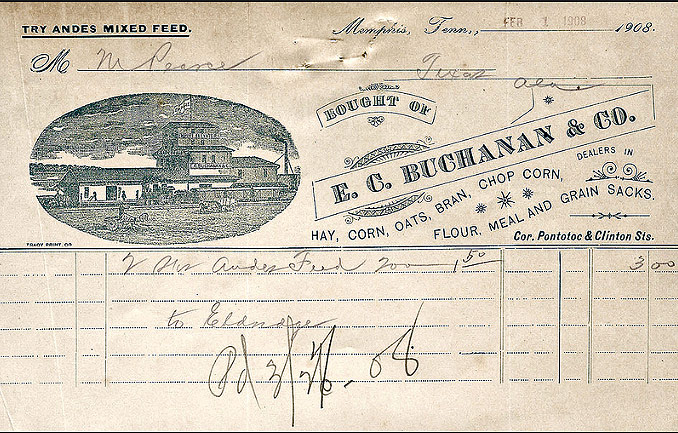 TRY ANDES MIXED FEED.
Memphis, Tenn., FEB 1 1908 1908.
M M Pearce
Texas
Ala
BOUGHT OF
E. C. BUCHANAN & CO.
DEALERS IN
HAY, CORN, OATS, BRAN, CHOP CORN,
FLOUR, MEAL AND GRAIN SACKS.
Cor. Pontotoc & Clinton Sts.
TRACY PRINT. CO.
2 Andes Feed 200 1 50 3 00
to
Pd 3/26. 08